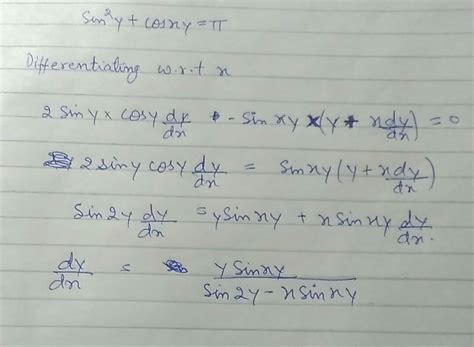 sin²y + cosxy = π
Differentiating w.r.t x
2 sin y × cosy dy/dx + - sin xy × (y + x dy/dx) = 0
2 sin y cosy dy/dx = sin xy (y + x dy/dx)
Sin 2y dy/dx = y sin xy + x sin xy dy/dx.
dy/dx = y sin xy / sin 2y - x sin xy